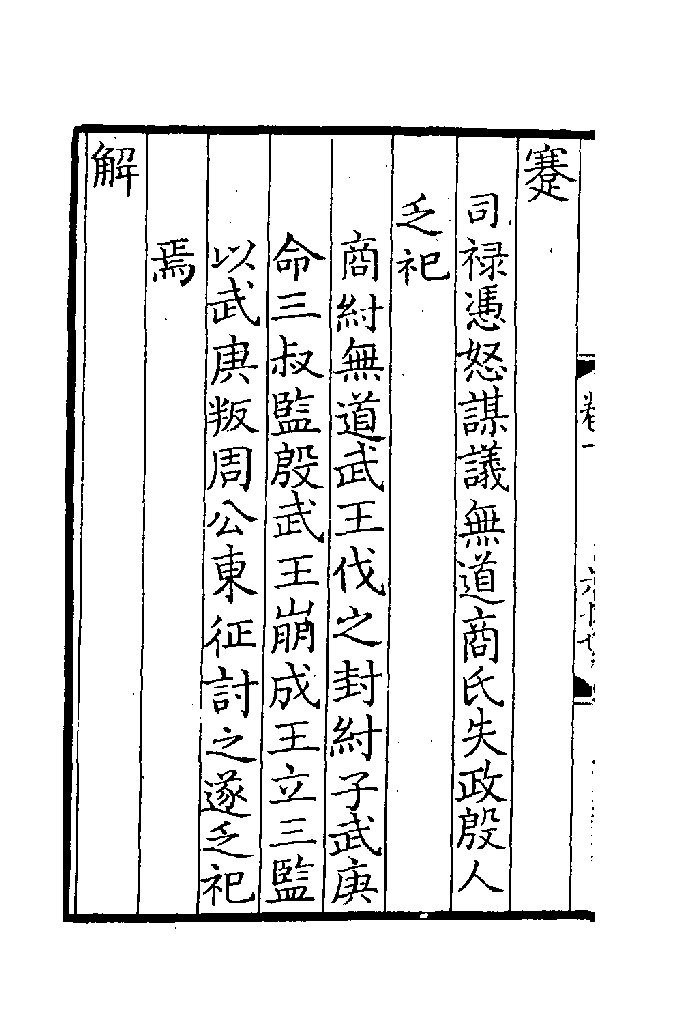 蹇
司禄憑怒謀議無道商氏失政殷人
乏祀
商紂無道武王伐之封紂子武庚
命三叔監殷武王崩成王立三監
以武庚叛周公東征討之遂乏祀
焉
解